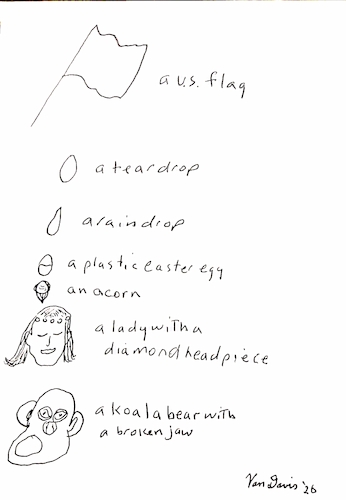 a u.s. flag
a teardrop
a raindrop
a plastic easter egg
an acorn
a lady with a
diamond headpiece
a koala bear with
a broken jaw
Van Davis '26